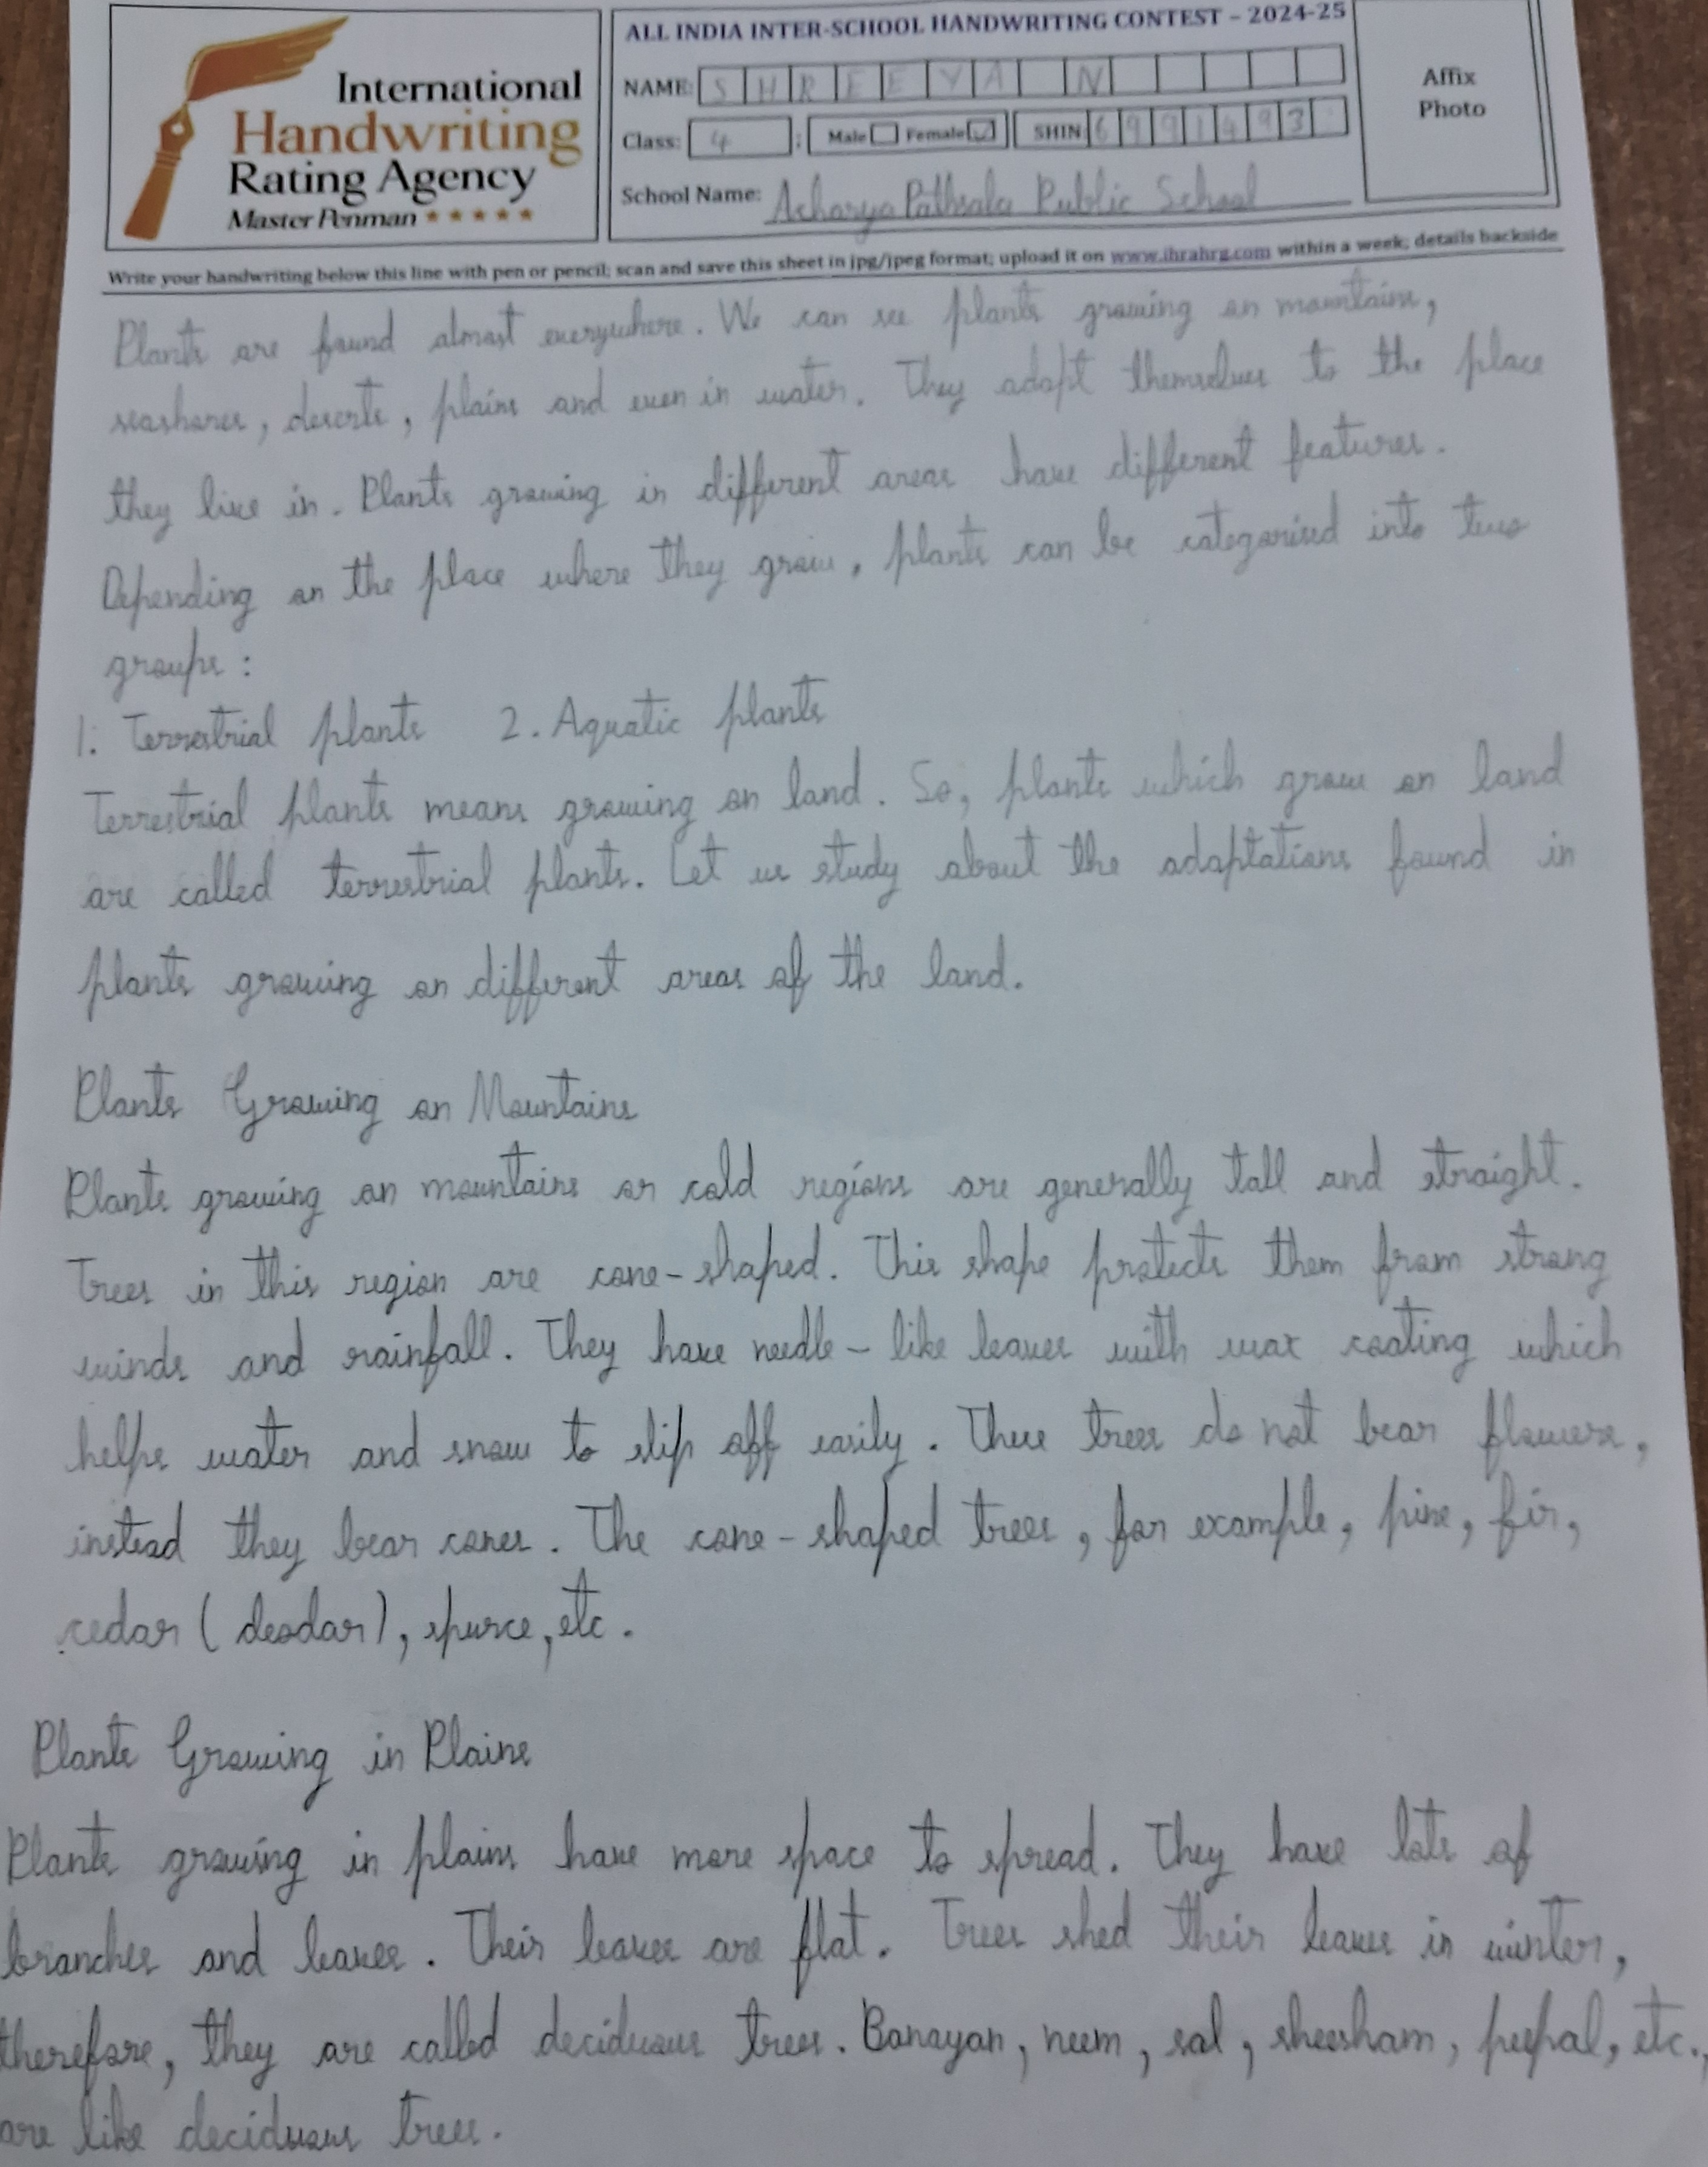 International
Handwriting
Rating Agency
Master Penman ★★★★★
ALL INDIA INTER-SCHOOL HANDWRITING CONTEST - 2024-25
NAME: SHREEYA N
Class: 4 : Male Female ✓ SHIN 6991493
School Name: Acharya Pathsala Public School
Affix
Photo
Write your handwriting below this line with pen or pencil; scan and save this sheet in jpg/jpeg format; upload it on www.ihrahrg.com within a week; details backside
Plants are found almost everywhere. We can see plants growing on mountains,
seashores, deserts, plains and even in water. They adapt themselves to the place
they live in. Plants growing in different areas have different features.
Depending on the place where they grow, plants can be categorised into two
groups :
1. Terrestrial plants 2. Aquatic plants
Terrestrial plants means growing on land. So, plants which grow on land
are called terrestrial plants. Let us study about the adaptations found in
plants growing on different areas of the land.
Plants Growing on Mountains
Plants growing on mountains or cold regions are generally tall and straight.
Trees in this region are cone-shaped. This shape protects them from strong
winds and rainfall. They have needle-like leaves with wax coating which
helps water and snow to slip off easily. These trees do not bear flowers,
instead they bear cones. The cone-shaped trees, for example, pine, fir,
cedar (deodar), spurce, etc.
Plants Growing in Plains
Plants growing in plains have more space to spread. They have lots of
branches and leaves. Their leaves are flat. Trees shed their leaves in winter,
therefore, they are called deciduous trees. Banayan, neem, sal, sheesham, peepal, etc.,
are like deciduous trees.